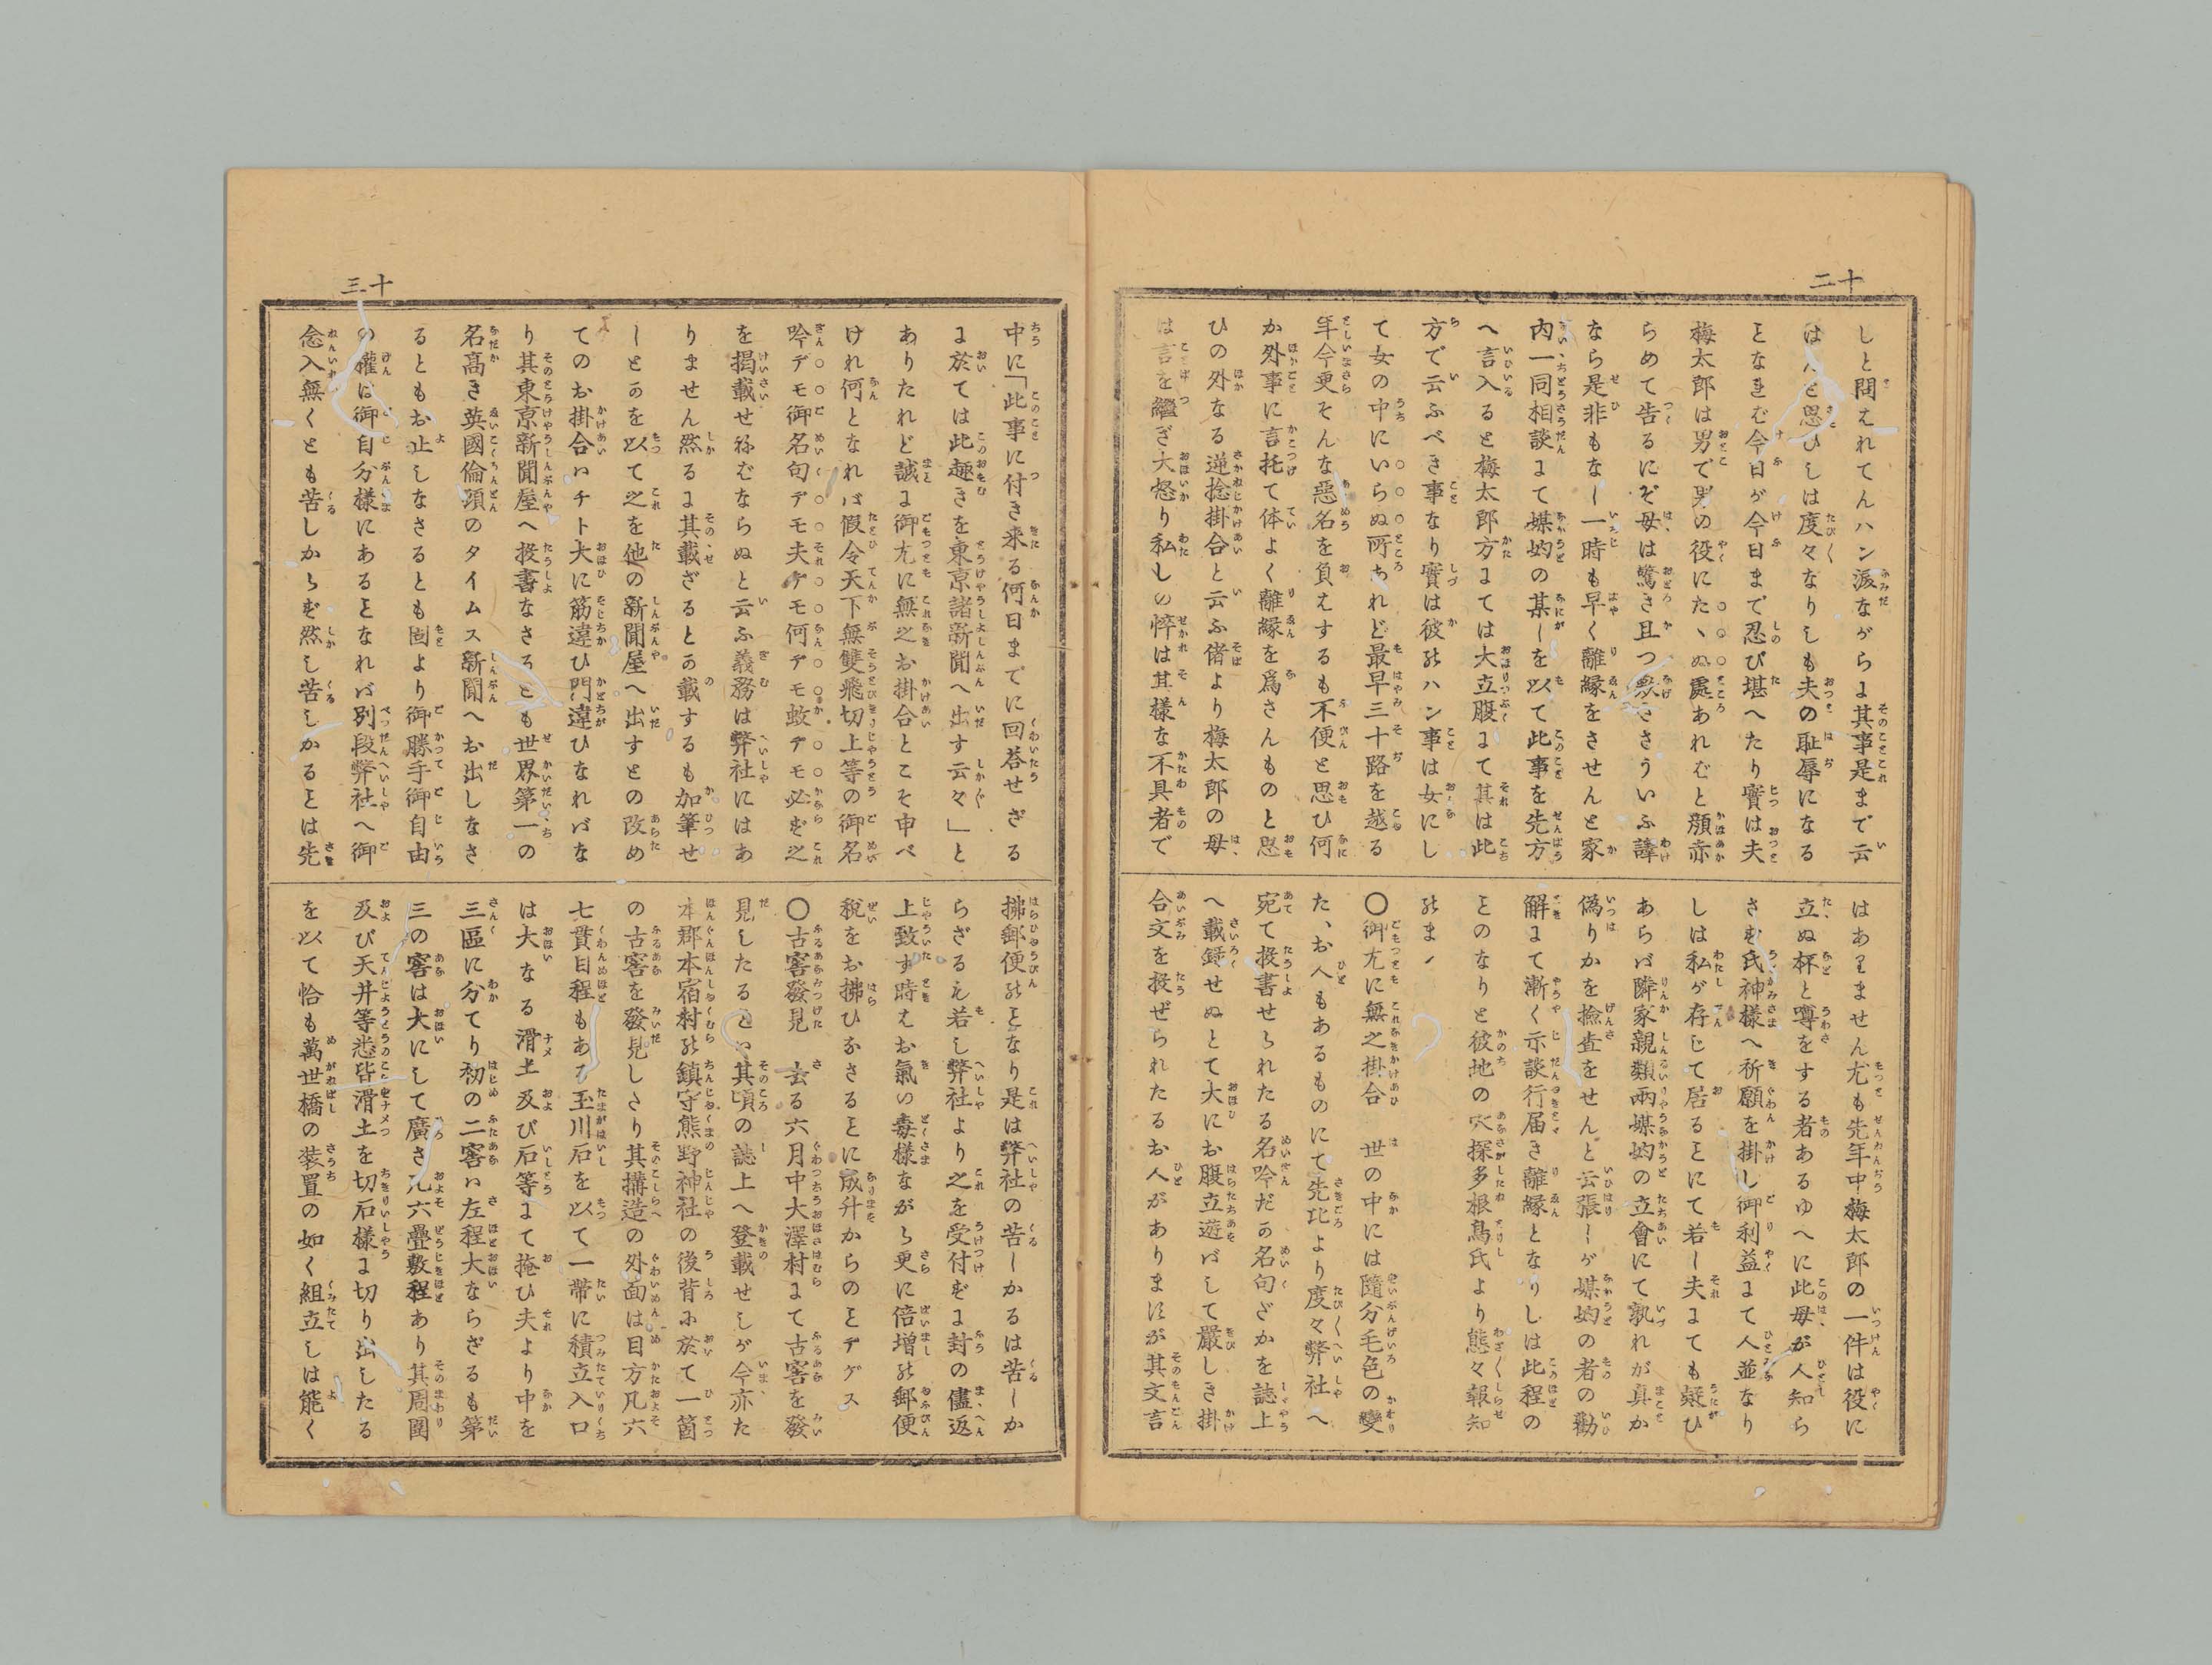 十二
しと問えれてハン涙ながらよ其事是まで云
は人と思ひしは度々なりしも夫の耻辱になる
ことなれむ今日が今日まで忍び堪へたり實は夫
梅太郎は男で男の役にたゝぬ處あれむと顔赤
らめて告るにぞ母は驚き且つ歎きさういふ譯
なら是非もなし一時も早く離縁をさせんと家
内一同相談よて媒妁の某しを以て此事を先方
へ言入ると梅太郎方よては大立腹よて其は此
方で云ふべき事なり實は彼のハン事は女にし
て女の中にいらぬ所あれど最早三十路を越る
年今更そんな惡名を負えするも不便と思ひ何
か外事に言托て体よく離縁を爲さんものと思
ひの外なる逆捻掛合と云ふ儲より梅太郎の母
は言を繼ぎ大怒り私しの悴は其樣な不具者で
はありません尤も先年中梅太郎の一件は役に
立ぬ杯と噂をする者あるゆへに此母が人知ら
さむ氏神様へ祈願を掛し御利益よて人並なり
しは私が存じて居ることにて若し夫よても疑ひ
あらバ隣家親類兩媒妁の立會にて孰れが真か
偽りかを撿査をせんと云張しが媒妁の者の勸
解よて漸く示談行届き離縁となりしは此程の
ことのなりと彼地の穴探多根鳥氏より態々報知
のまゝ
〇御尤に無之掛合 世の中には隨分毛色の變
たゝお人もあるものにて先比より度々弊社へ
宛て投書せられたる名吟だの名句ざかを誌上
へ載録せぬとて大にお腹立遊バして嚴しき掛
合文を投ぜられたるお人がありますが其文言
十三
中に「此事に付き来る何日までに回答せざる
よ於ては此趣きを東京諸新聞へ出す云々」と
ありたれど誠よ御尤に無之お掛合とこそ申べ
けれ何となれバ假令天下無雙飛切上等の御名
吟デモ御名句デモ夫デモ何デモ蚊デモ必ず之
を揭載せねむならぬと云ふ義務は弊社にはあ
りません然るよ其載ざるとの載するも加筆せ
しとのを以て之を他の新聞屋へ出すとの改め
てのお掛合ハチト大に筋違ひ門違ひなれバな
り其東京新聞屋へ投書なさるとも世界第一の
名高き英國倫頓のタイムス新聞へお出しなさ
るともお止しなさるとも固より御勝手御自由
の權は御自分様にあることなれバ別段弊社へ御
念入無くとも苦しからず然し苦しかることは先
拂郵便のことなり是は弊社の苦しかるは苦しか
らざるえ若し弊社より之を受付ずよ封の儘返
上致す時えお氣い毒様ながら更に倍増の郵便
税をお拂ひなさることに宬升からのことデゲス
〇古窖發見 去る六月中大澤村よて古窖を發
見したることハ其頃の誌上へ登載せしが今亦た
本郡本宿村の鎮守熊野神社の後背に於て一箇
の古窖を發見しさり其搆造の外面は目方凡六
七貫目程もある玉川石を以て一帯に積立入口
は大なる滑土及び石等よて掩ひ夫より中を
三區に分てり初の二窖ハ左程大ならざるも第
三の窖は大にして廣さ凡六疊敷程あり其周圍
及び天井等悉皆滑土を切石様よ切り出したる
を以て恰も萬世橋の装置の如く組立しは能く